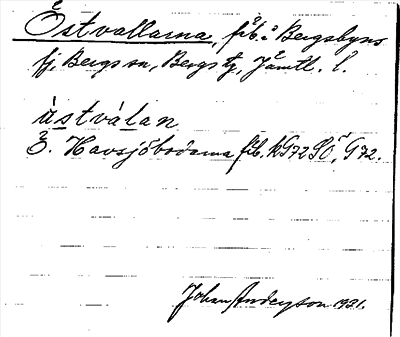 Östvallarna, fäb. i Bergsbyns
fj, Bergs sn, Bergs tg, Jämtl. l.
ùstválan
Ö. Havsjöbodarna fäb. k G72 SO, G72.
Johan Anderzson 1921.